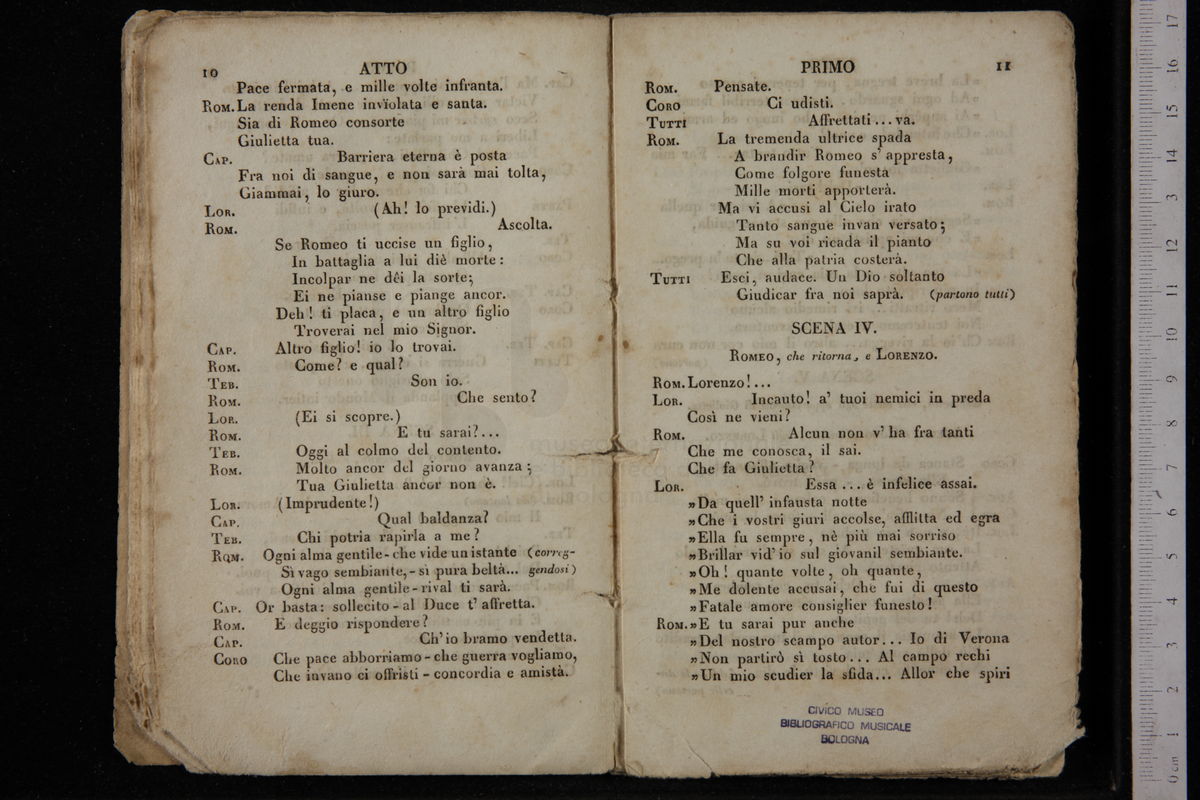 10
ATTO
Pace fermata, e mille volte infranta.
Rom. La renda Imene inviolata e santa.
Sia di Romeo consorte
Giulietta tua.
Cap. Barriera eterna è posta
Fra noi di sangue, e non sarà mai tolta,
Giammai, lo giuro.
Lor. (Ah! lo previdi.)
Rom. Ascolta.
Se Romeo ti uccise un figlio,
In battaglia a lui diè morte:
Incolpar ne dêi la sorte;
Ei ne pianse e piange ancor.
Deh! ti placa, e un altro figlio
Troverai nel mio Signor.
Cap. Altro figlio! io lo trovai.
Rom. Come? e qual?
Teb. Son io.
Rom. Che sento?
Lor. (Ei si scopre.)
Rom. E tu sarai?...
Teb. Oggi al colmo del contento.
Rom. Molto ancor del giorno avanza;
Tua Giulietta ancor non è.
Lor. (Imprudente!)
Cap. Qual baldanza?
Teb. Chi potria rapirla a me?
Rom. Ogni alma gentile - che vide un istante (correg-
Sì vago sembiante, - sì pura beltà... gendosi)
Ogni alma gentile - rival ti sarà.
Cap. Or basta: sollecito - al Duce t' affretta.
Rom. E deggio rispondere?
Cap. Ch' io bramo vendetta.
Coro Che pace abborriamo - che guerra vogliamo,
Che invano ci offristi - concordia e amistà.
PRIMO
11
Rom. Pensate.
Coro Ci udisti.
Tutti Affrettati... va.
Rom. La tremenda ultrice spada
A brandir Romeo s' appresta,
Come folgore funesta
Mille morti apporterà.
Ma vi accusi al Cielo irato
Tanto sangue invan versato;
Ma su voi ricada il pianto
Che alla patria costerà.
Tutti Esci, audace. Un Dio soltanto
Giudicar fra noi saprà. (partono tutti)
SCENA IV.
Romeo, che ritorna, e Lorenzo.
Rom. Lorenzo!...
Lor. Incauto! a' tuoi nemici in preda
Così ne vieni?
Rom. Alcun non v' ha fra tanti
Che me conosca, il sai.
Che fa Giulietta?
Lor. Essa... è infelice assai.
»Da quell' infausta notte
»Che i vostri giuri accolse, afflitta ed egra
»Ella fu sempre, nè più mai sorriso
»Brillar vid' io sul giovanil sembiante.
»Oh! quante volte, oh quante,
»Me dolente accusai, che fui di questo
»Fatale amore consiglier funesto!
Rom. »E tu sarai pur anche
»Del nostro scampo autor... Io di Verona
»Non partirò sì tosto... Al campo rechi
»Un mio scudier la sfida... Allor che spiri
CIVICO MUSEO
BIBLIOGRAFICO MUSICALE
BOLOGNA